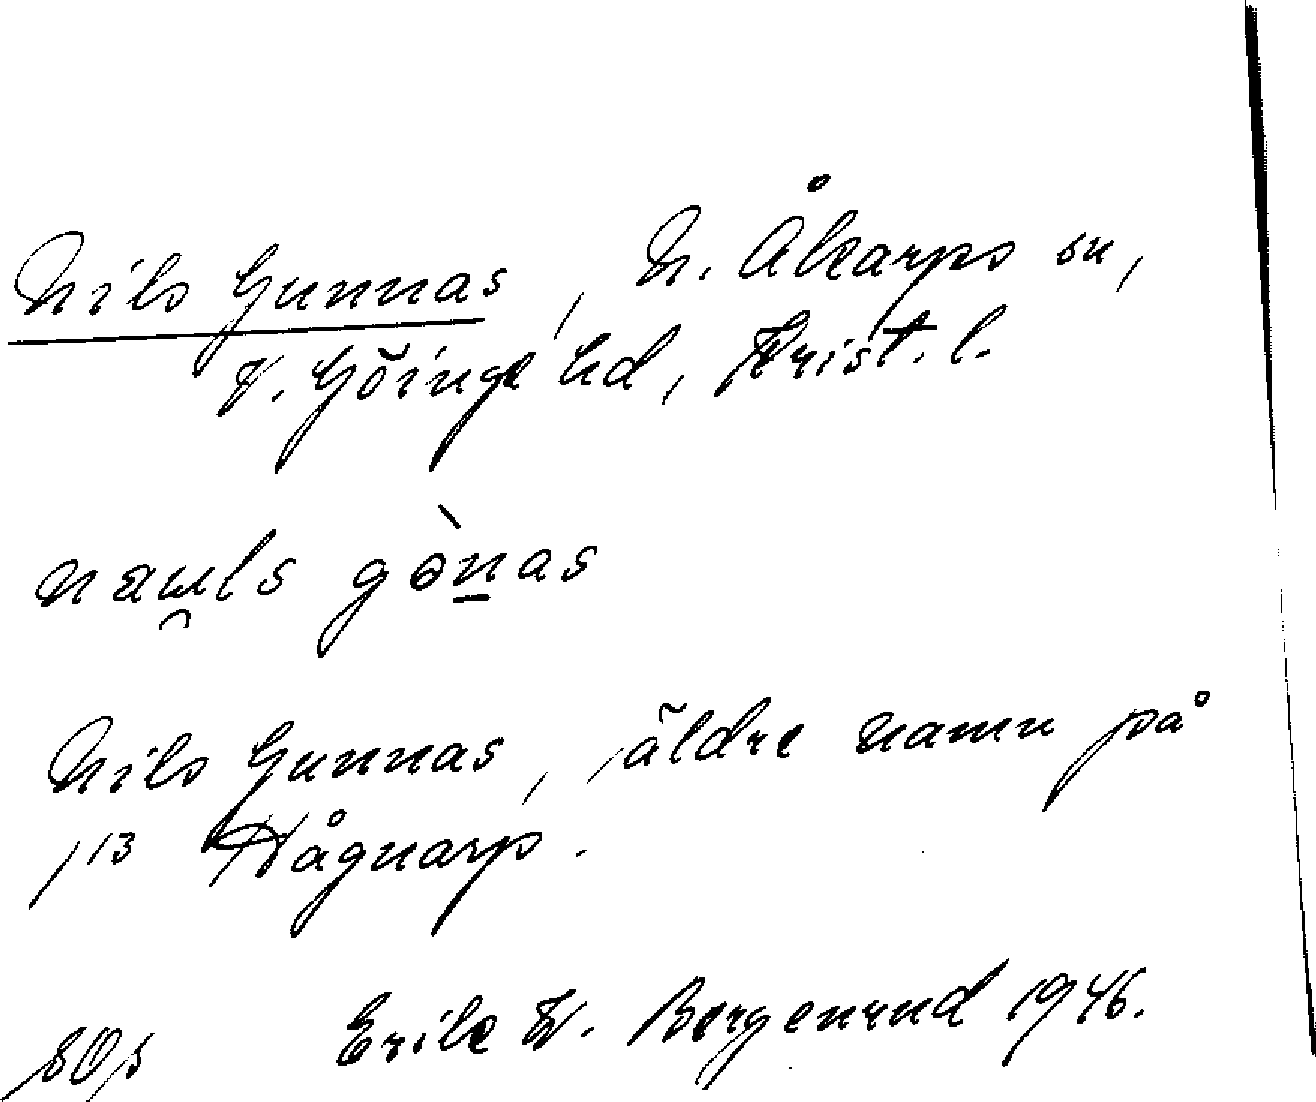 Nils Gunnas, N. Åkarps sn,
V. Göinge hd, Krist. l.
Nils Gunnas, äldre namn på
1/13 Hågnarp.
Erik W. Bergenrud 1946.